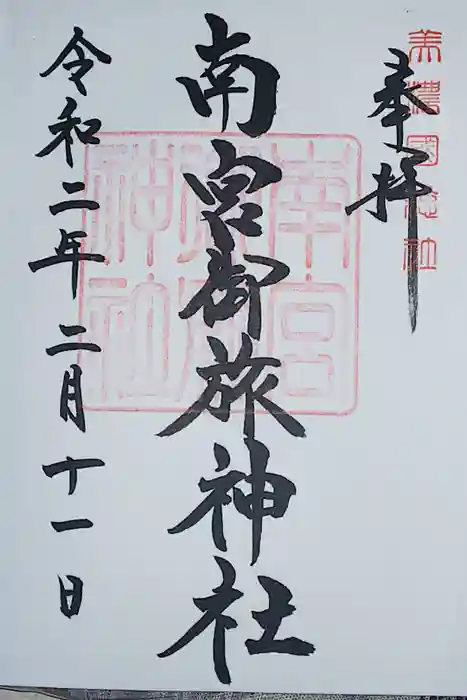 美濃國総社
奉拝
南宮御旅神社
南宮御旅神社
令和二年二月十一日